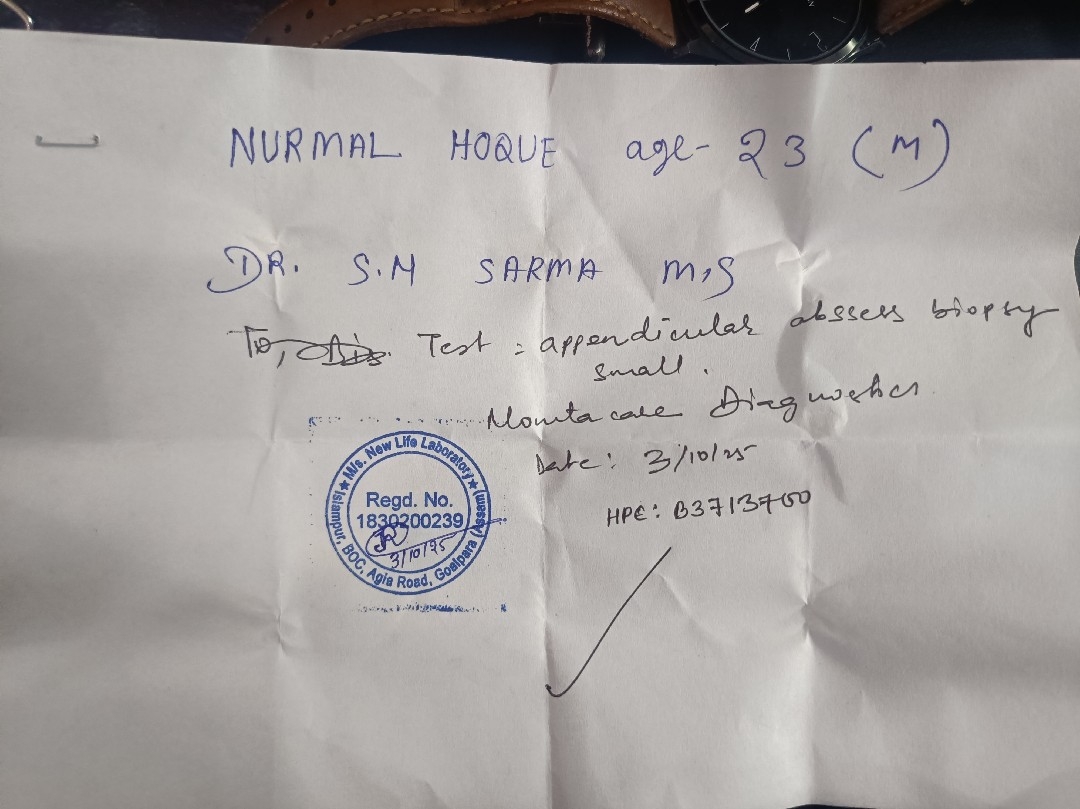 NURMAL HOQUE age- 23 (M)
DR. S.M SARMA M.S
To, Test : appendicular abssess biopsy
small.
Momta care Diagnostics
Date: 3/10/25
HPE: B3713700
M/s. New Life Laboratory
Islampur, BOC, Agia Road, Goalpara (Assam)
Regd. No.
1830200239
3/10/25